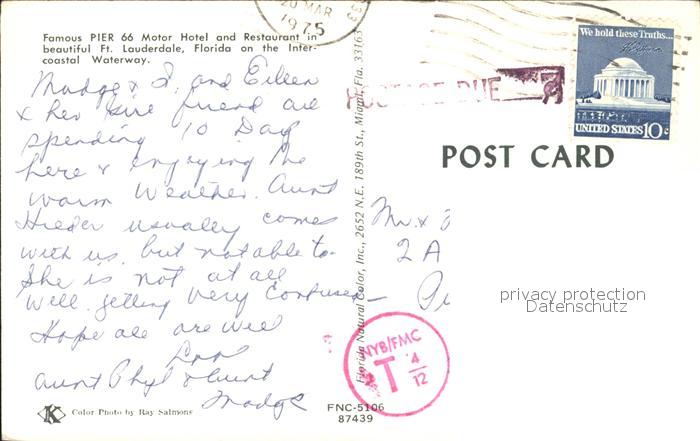 Famous PIER 66 Motor Hotel and Restaurant in
beautiful Ft. Lauderdale, Florida on the Inter-
coastal Waterway.
Madge & I, and Eileen
& her friend are
spending 10 Day
here & enjoying the
warm weather. Aunt
usualley comes
with us, but not able to-
She is not at all
well. getting very Confused-
Hope all are well
Love
Aunt Phyl & Aunt
Madge
Color Photo by Ray Salmons
Florida Natural Color, Inc., 2652 N.E. 189th St., Miami, Fla. 33163
FNC-5106
87439
20 MAR
1975
POSTAGE DUE
We hold these Truths...
UNITED STATES 10c
POST CARD
Mr. &
2 A
privacy protection
Datenschutz
NYB/FMC
T 4/12